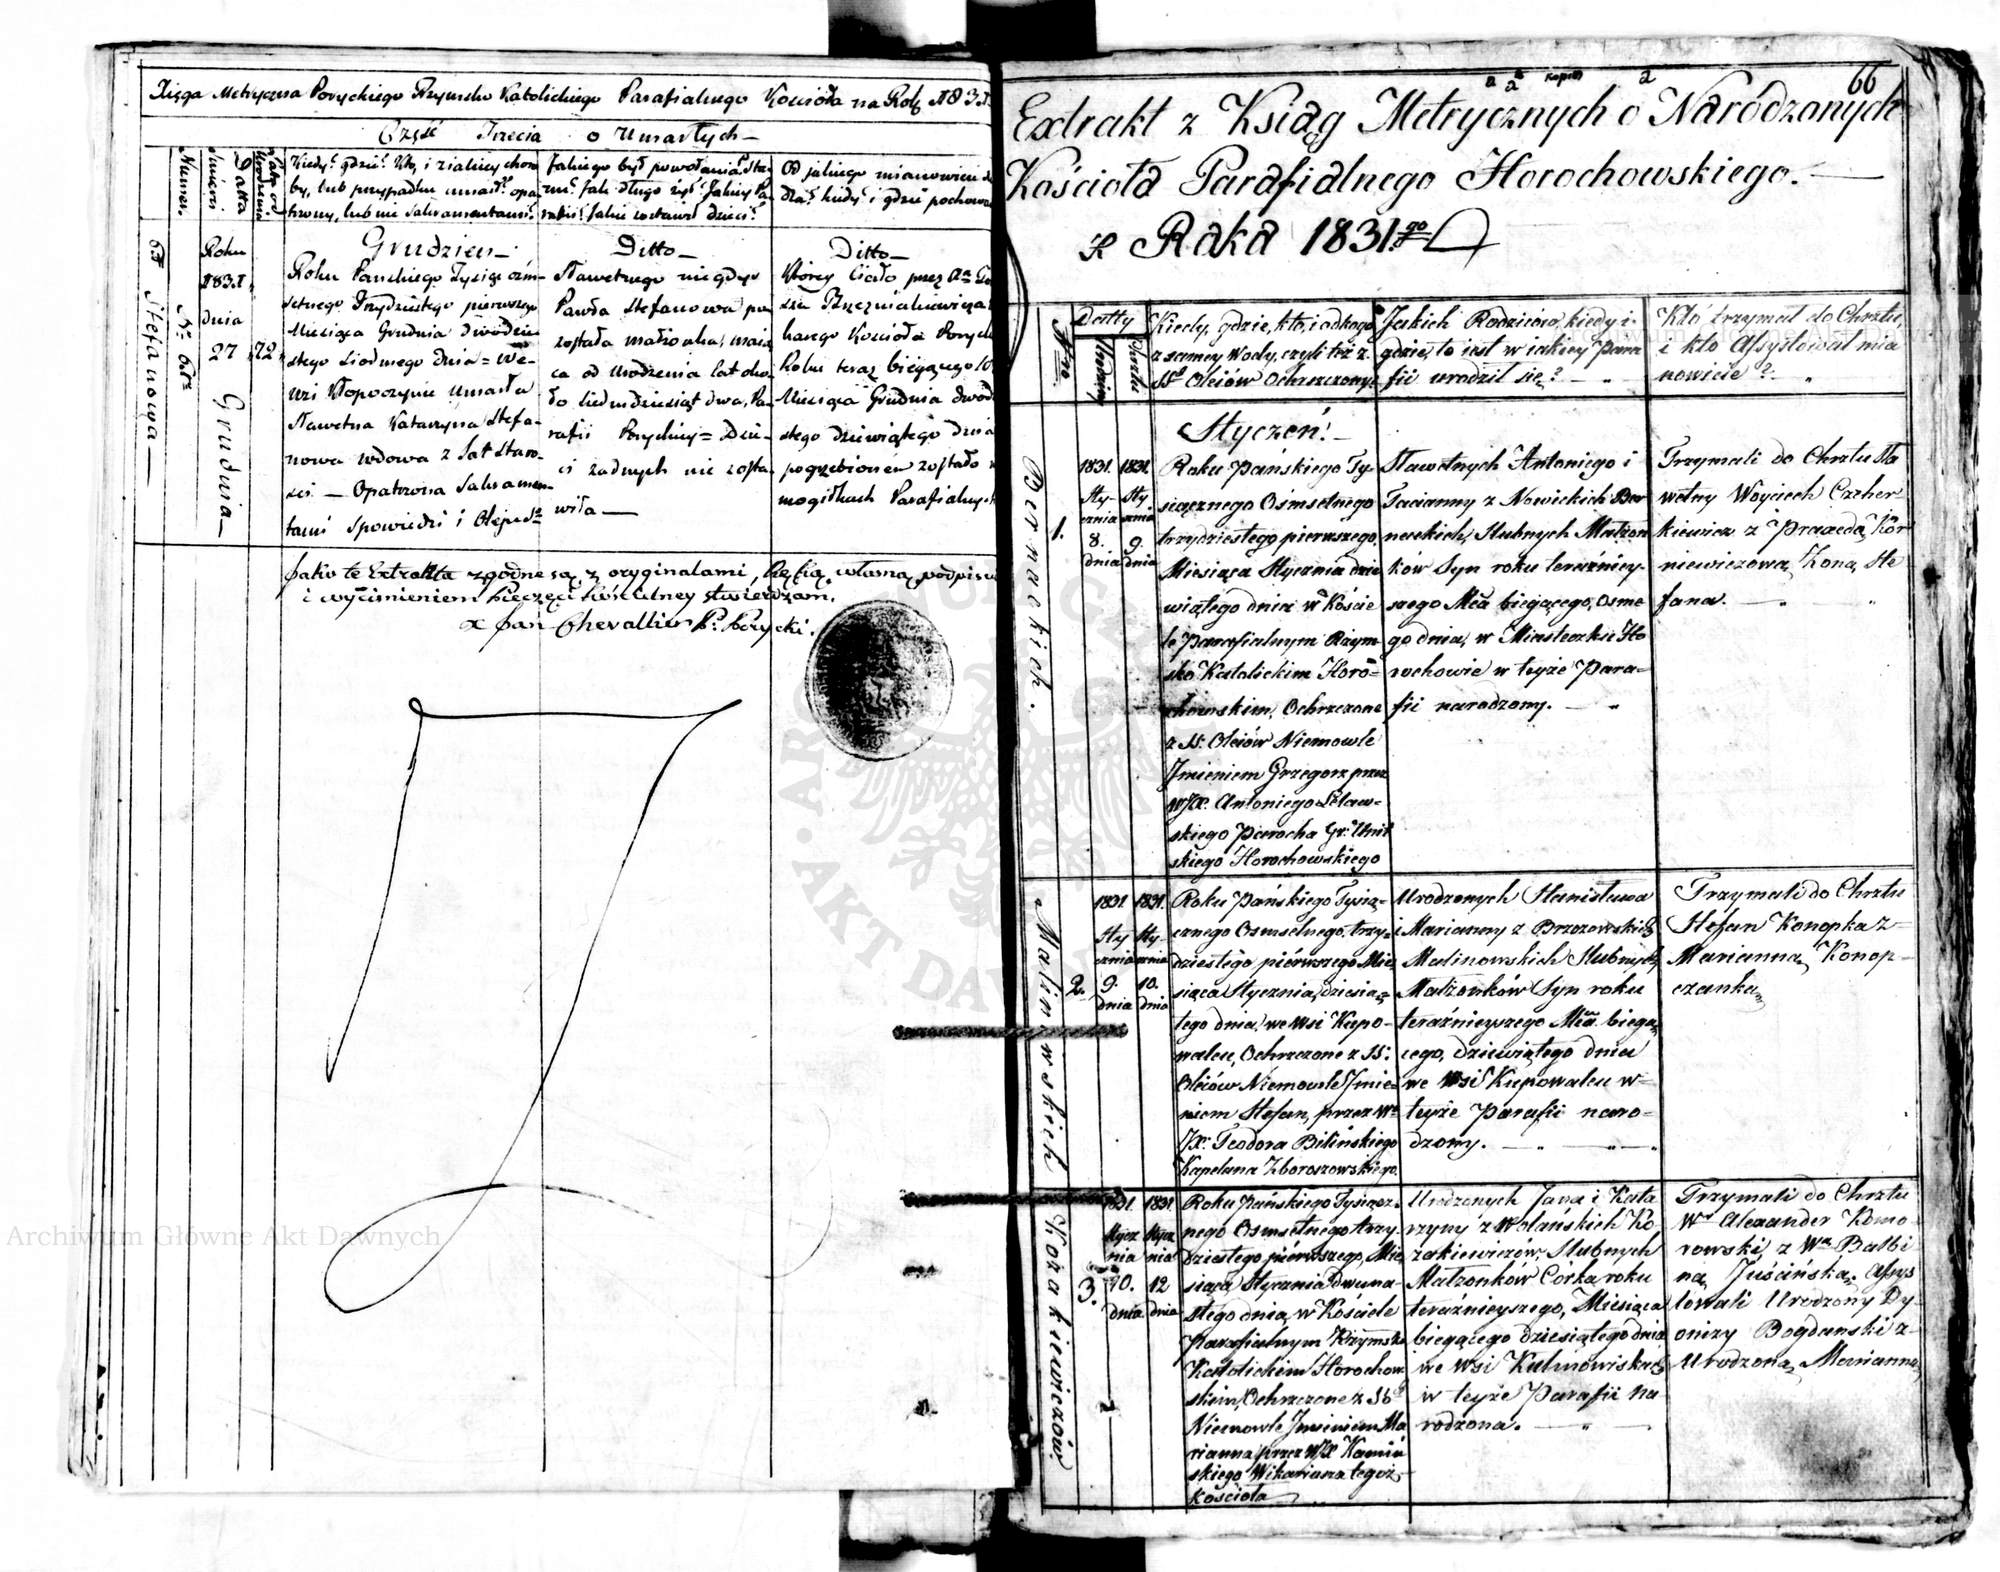 Xięga Metryczna Poryckiego Rzymsko Katolickiego Parafialnego Kościoła na Rok 1831.
Część Trzecia o Umarłych
Numer.
Śmierci
Datta
Lata od Urodzenia
Kiedy? gdzie? Kto, i z iakiey choro
by, lub przypadku umarł? opa
trzony, lub nie Sakramentami?
Jakiego był powołania? Sta-
nu? jak długo żył? Jakiey Pa-
rafii? Jakie zostawił dzieci?
Od jakiego mianowicie
kiedy? i gdzie pochowa
Stefanowa
Roku
1831
dnia
27
Grudnia
72
Grudzień
Roku Pańskiego Tysiąc óśm-
setnego Trzydziestego pierwszego
Miesiąca Grudnia dwódzie-
stego siódmego dnia = we
wsi Kłopoczynie umarła
Sławetna Katarzyna Stefa-
nowa wdowa z lat Staro-
ści — Opatrzona Sakramen-
tami Spowiedzi i Olejów
Ditto
Sławetnego niegdyś
Pawła Stefanowa po
została małżonka, maią
ca od urodzenia lat oko-
ło siedmdziesiąt dwa, Pa-
rafii Poryckiey = Dzie-
ci żadnych nie zosta-
wiła —
Ditto
Którey Ciało przez
hanego Kościoła Poryck
Roku teraz bieżącego
Miesiąca Grudnia dwód
stego dziewiątego dnia
pogrzebionem zostało
mogiłkach Parafialnych
Jako te Extrakta zgodne są z oryginałami, Ręką własną podpisu
i wyciśnieniem pieczęci Kościelney stwierdzam.
X Jan Chevallier P. Porycki.
66
Extrakt z Ksiąg Metrycznych o Narodzonych
Kościoła Parafialnego Horochowskiego.
z Roku 1831.go
Nro
Datty
Urodzin
Chrztu
Kiedy, gdzie, kto, i od kogo
z samey Wody, czyli też z
SS. Oleiów Ochrzczony.
Jakich Rodziców, kiedy i
gdzie, to iest w iakiey Para
fii urodził się?
Kto trzymał do Chrztu,
i kto Assystował mia
nowicie?
Styczeń!
Bernackich.
1.
1831. 1831.
Sty- Sty
cznia cznia
8. 9.
dnia dnia
Roku Pańskiego Ty-
siącznego Ośmsetnego
trzydziestego pierwszego,
Miesiąca Stycznia dzie
wiątego dnia w Koście
le Parafialnym Rzym-
sko Katolickim Horo-
chowskim, Ochrzczone
z SS. Oleiów Niemowle
Imieniem Grzegorz przez
WJX. Antoniego Sław-
skiego Parocha Gr: Unit
skiego Horochowskiego
Sławetnych Antoniego i
Tacianny z Nowickich Ber
nackich, Slubnych Małżon
ków Syn roku teraźniey-
szego Mca biegącego, osme
go dnia, w Miasteczku Ho
rochowie w teyże Para-
fii narodzony.
Trzymali do Chrztu Sła
wetny Woyciech Czeher-
kiewicz z Praxedą Kor
niewiczową Żoną Ste
fana.
Malinowskich
2.
1831. 1831.
Sty Sty-
cznia cznia
9. 10.
dnia dnia
Roku Pańskiego Tysią-
cznego Osmsetnego, trzy-
dziestego pierwszego Mie-
siąca Stycznia, dziesią-
tego dnia, we wsi Kupo-
walcu, Ochrzczone z SS:
Oleiów Niemowle Imie-
niem Stefan, przez W.
JX: Teodora Bilińskiego
Kapelana Zboroszowskiego.
Urodzonych Stanisława
i Marianny z Brzozowskich
Malinowskich Slubnych
Małżonków Syn roku
teraźnieyszego Mca biegą
cego, dziewiątego dnia
we Wsi Kupowalcu w
teyże Parafii naro-
dzony.
Trzymali do Chrztu
Stefan Konopka z
Marianną Konop-
czanką
Kozakiewiczów.
3.
1831. 1831.
Stycz Stycz
nia nia
10. 12
dnia dnia
Roku Pańskiego Tysiącz-
nego Osmsetnego trzy
dziestego pierwszego, Mie
siąca Stycznia dwuna-
stego dnia, w Kościele
Parafialnym Rzymsko
Katolickim Horochow
skim, Ochrzczone z SS.
Niemowle Imieniem Ma
rianna, przez WJX Kamiń
skiego Wikariusza tegoż
Kościoła
Urodzonych Jana i Kata
rzyny z Wolańskich Ko
zakiewiczów, Slubnych
Małżonków Córka, roku
teraźnieyszego, Miesiąca
biegącego dziesiątego dnia
we Wsi Kulinowiskach
w teyże Parafii na
rodzona.
Trzymali do Chrztu
W. Alexander Komo-
rowski, z W. Balbi
ną Juścińską. Assys
towali Urodzony Dy-
onizy Bogdanski z
Urodzoną Marianną
Archiwum Główne Akt Dawnych